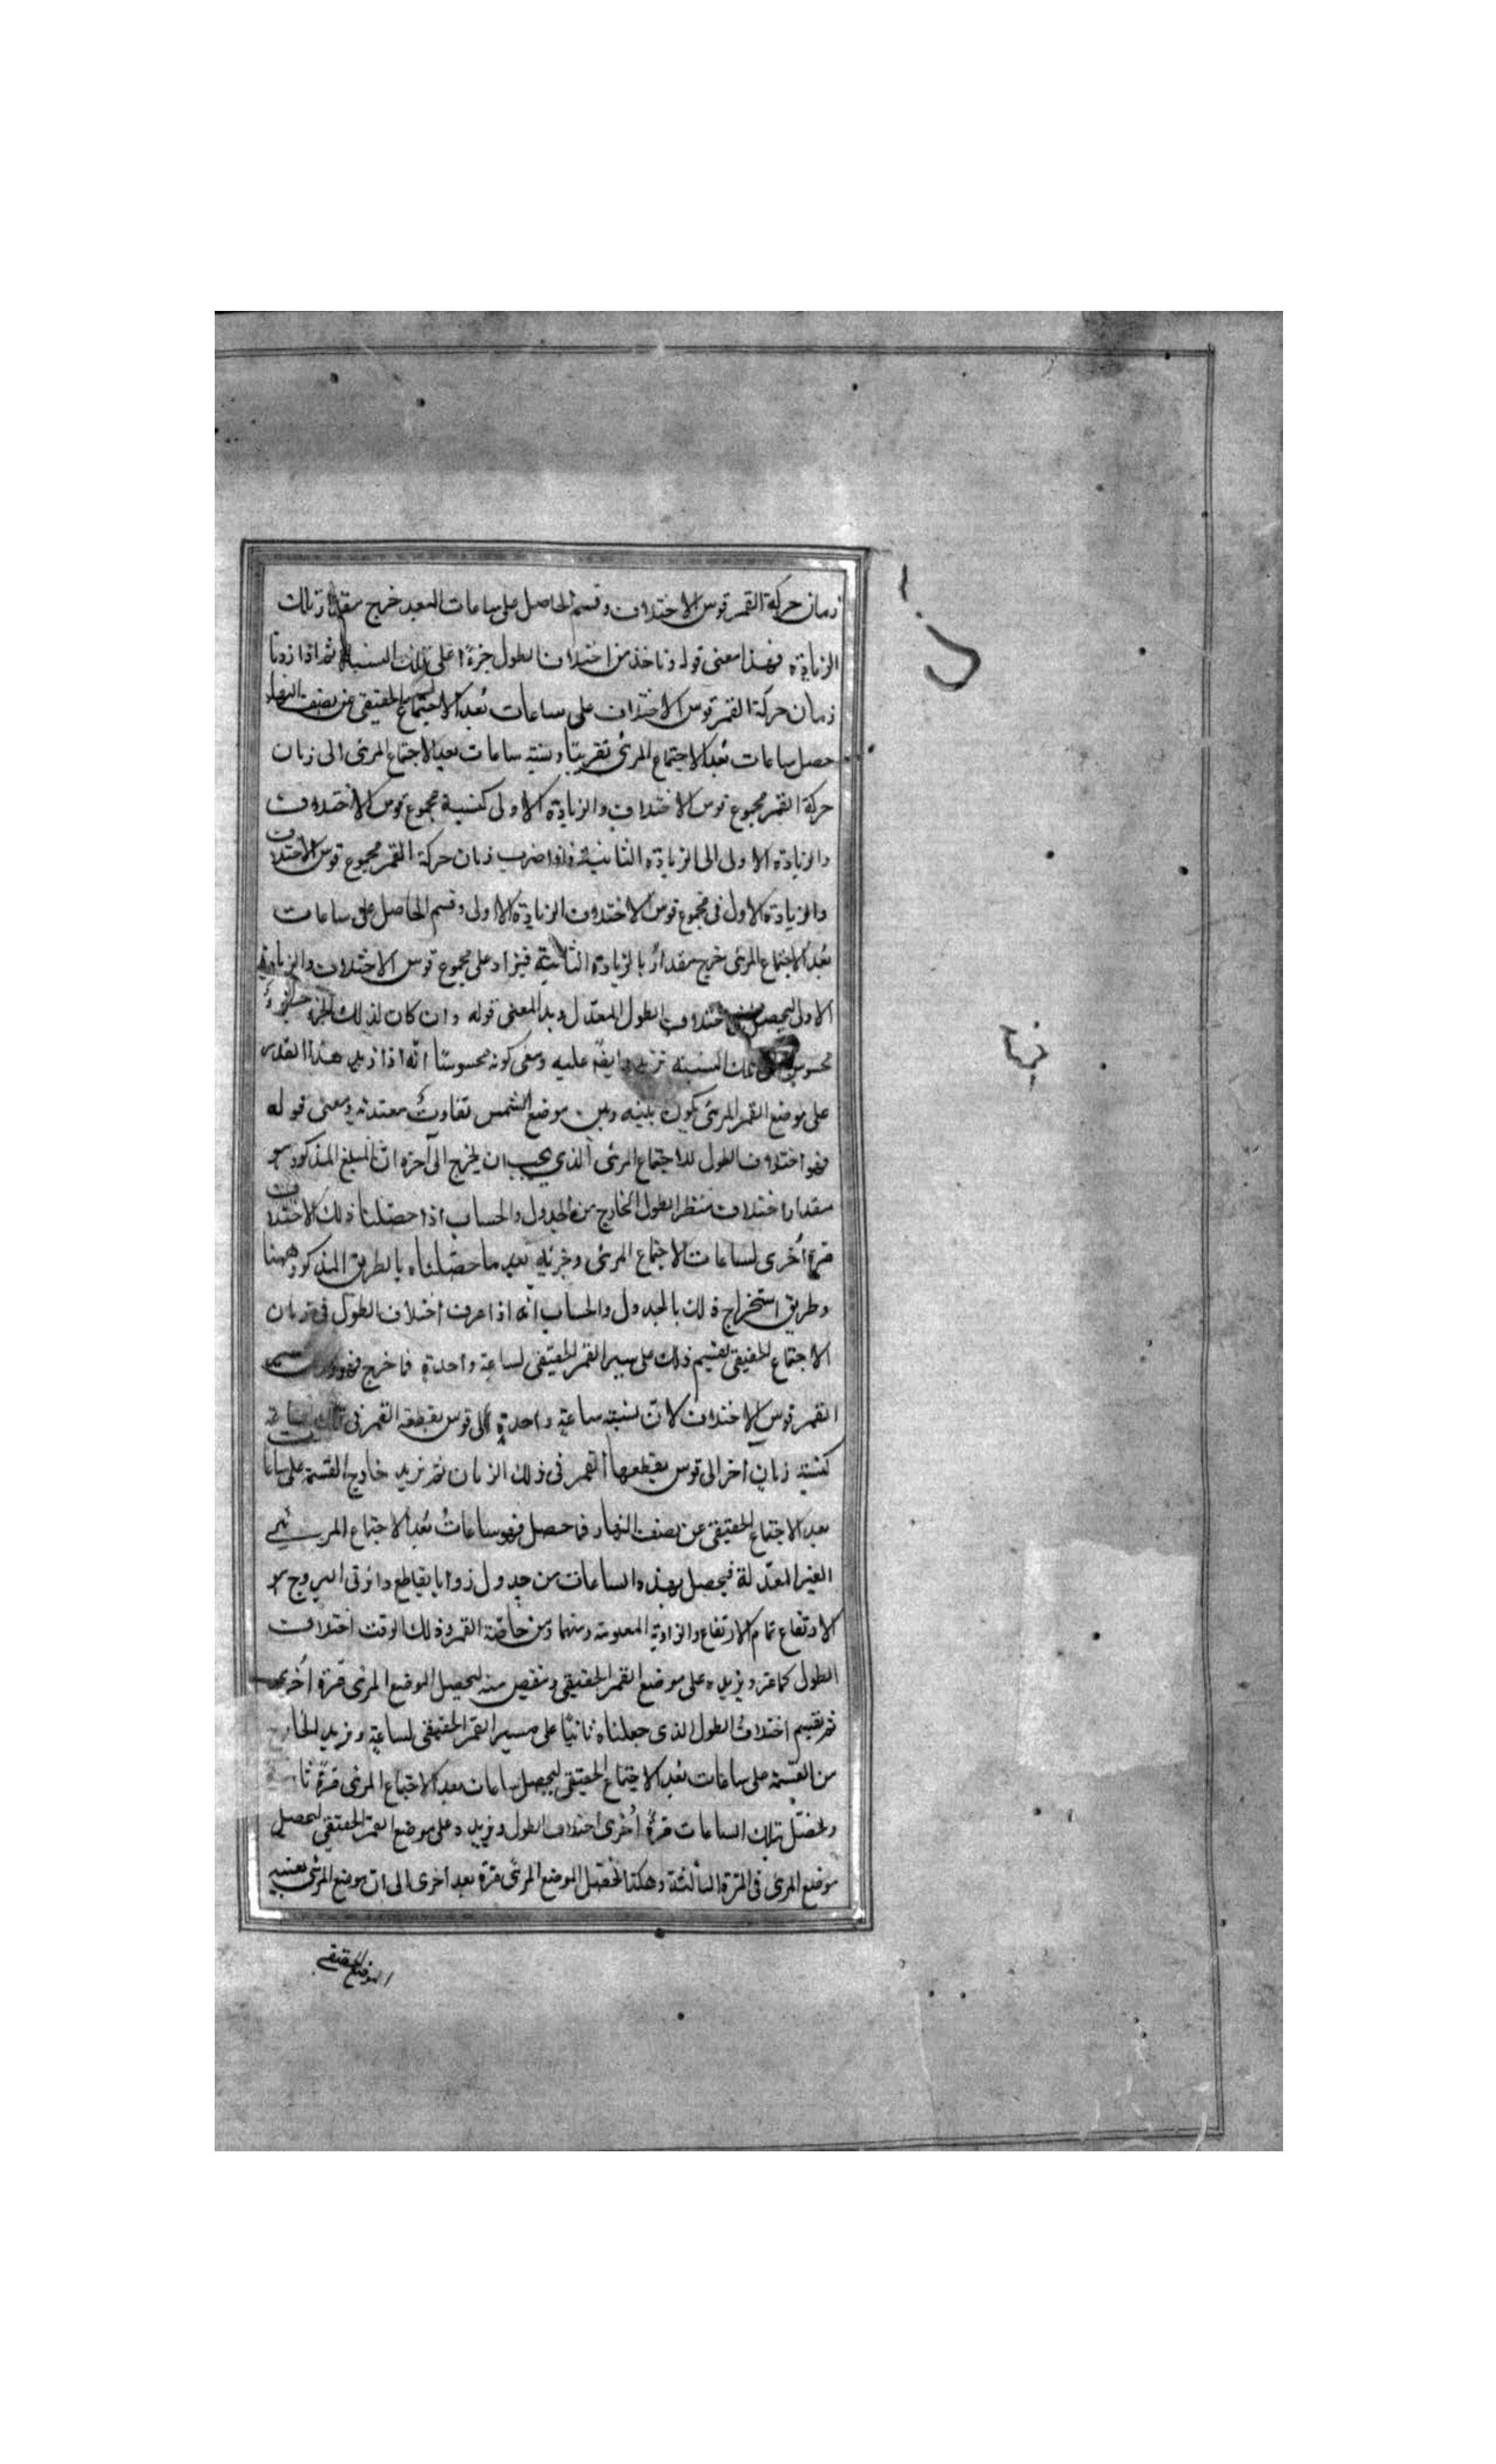 زمان حركة القمر قوس الاختلاف وقسم الحاصل على ساعات البعد خرج مقدار تلك
الزيادة فهذا معنى قوله وناخذ من اختلاف الطول جزءًا على تلك النسبة ثم اذا زدنا
زمان حركة القمر قوس الاختلاف على ساعات بُعد الاجتماع الحقيقى عن نصف النهار
حصل ساعات بُعد الاجتماع المرئى تقريبًا ونسبة ساعات بعد الاجتماع المرئى الى زمان
حركة القمر مجموع قوس الاختلاف والزيادة الاولى كنسبة مجموع قوس الاختلاف
والزيادة الاولى الى الزيادة الثانية فاذا ضرب زمان حركة القمر مجموع قوس الاختلاف
والزيادة الاول فى مجموع قوس الاختلاف الزيادة الاولى وقسم الحاصل على ساعات
بُعد الاجتماع المرئى خرج مقدار الزيادة الثانية فيزاد على مجموع قوس الاختلاف والزيادة
الاولى ليحصل اختلاف الطول المعدل وبدا المعنى قوله وان كان لذلك الجزء جزء
محسوس تلك النسبة نزيد ايضًا عليه ومعنى كونه محسوسًا انّه اذا زيد هذا القدر
على موضع القمر المرئى يكون بينه وبين موضع الشمس تفاوتٌ معتد به ومعنى قوله
فهو اختلاف الطول للاجتماع المرئى الذى يجب ان يخرج الى آخره انّ المبلغ المذكور هو
مقدار اختلاف منظر الطول الخارج من الجدول والحساب اذا حصّلنا ذلك الاختلاف
مرة اُخرى لساعات الاجتماع المرئى وجزئه بعد ما حصّلناه بالطريق المذكور وههنا
وطريق استخراج ذلك بالجدول والحساب انّه اذا عرف اختلاف الطول فى زمان
الاجتماع الحقيقى نقسم ذلك على مسير القمر الحقيقى لساعة واحدة فما خرج فهو
القمر قوس الاختلاف لانّ نسبة ساعة واحدة الى قوس يقطعه القمر فى تلك الساعة
كنسبة زمانٍ آخر الى قوس يقطعها القمر فى ذلك الزمان ثم نزيد خارج القسمة على ساعات
بعد الاجتماع الحقيقى عن نصف النهار فما حصل فهو ساعاتُ بُعد الاجتماع المرئى
الغير المعدّلة فيحصل بهذه الساعات من جدول زوايا تقاطع دائرتى البروج و
الارتفاع تمام الارتفاع والزاوية المعلومة ومنهما ومن خاصّة القمر فى ذلك الوقت اختلاف
الطول كما عرّ ونزيده على موضع القمر الحقيقى وننقص منه ليحصل الموضع المرئى مرّة اُخرى
ثم نقسم اختلاف الطول الذى جعلناه ثانيًا على مسير القمر الحقيقى لساعة ونزيد الخارج
من القسمة على ساعات بُعد الاجتماع الحقيقى ليحصل ساعات بعد الاجتماع المرئى مرّة
ونحصّل بتلك الساعات مرةً اُخرى اختلاف الطول ونزيده على موضع القمر الحقيقى ليحصل
موضع المرئى فى المرّة الثالثة وهكذا نحصّل الموضع المرئى مرّة بعد اخرى الى ان موضع المرئى بعينه
الموضع الحقيقى